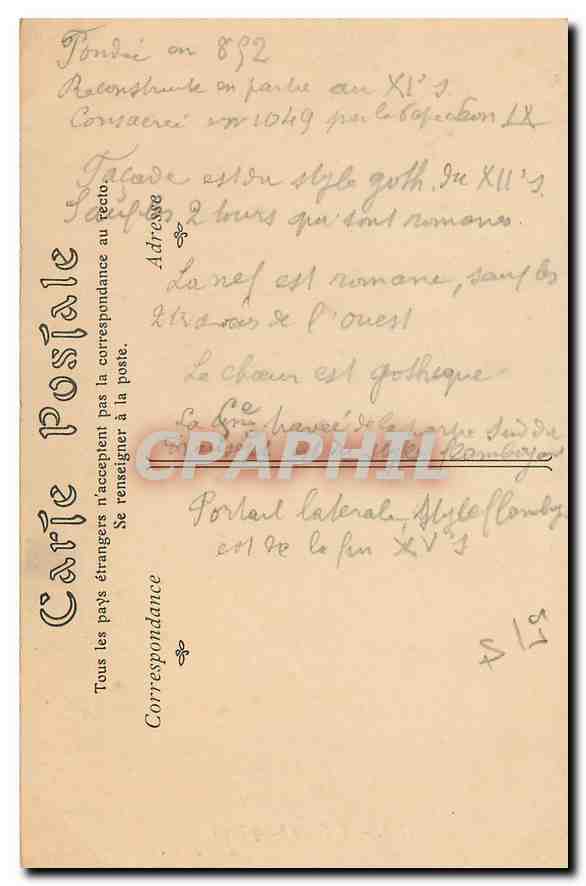 Fondée en 852
Reconstruite en partie au XI's.
Consacrée en 1049 par le Pape Léon IX
Façade est du style goth. du XII's.
Sauf les 2 tours qui sont romanes.
La nef est romane, sauf les
2 travées de l'ouest
Le chœur est gothique
La 6me travée de la partie sud du
Portail laterale, style flamboy.
est de la fin XV's
Carte Postale
Tous les pays étrangers n'acceptent pas la correspondance au recto.
Se renseigner à la poste.
Correspondance
Adresse
CPAPHIL